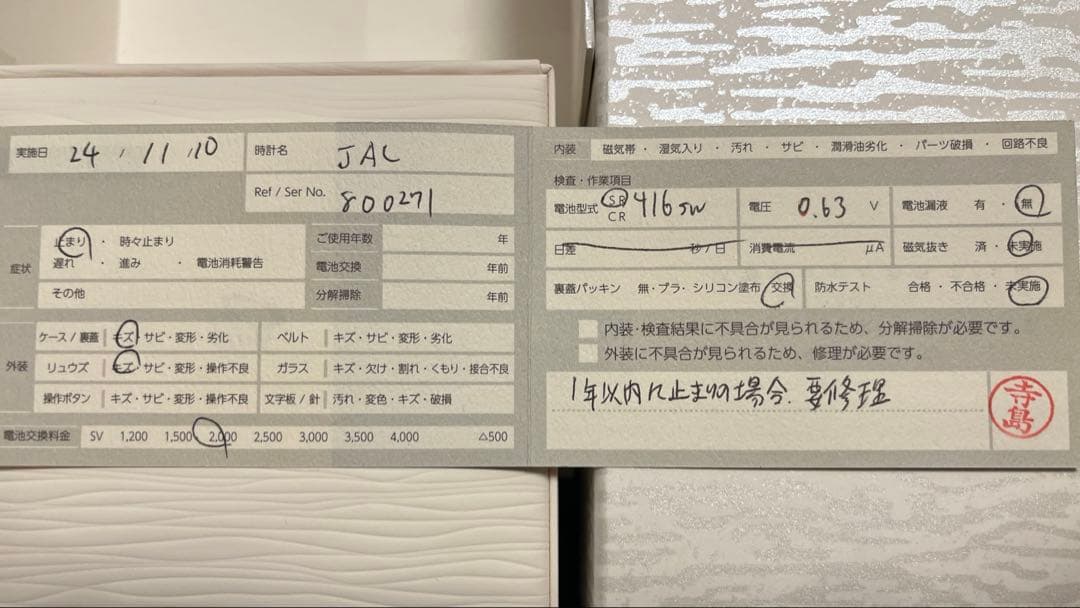 実施日 24 / 11 / 10
時計名 JAC
Ref / Ser No. 800271
症状
止まり ・ 時々止まり
遅れ ・ 進み ・ 電池消耗警告
その他
ご使用年数 年
電池交換 年前
分解掃除 年前
外装
ケース / 裏蓋 キズ・サビ・変形・劣化
ベルト キズ・サビ・変形・劣化
リュウズ キズ・サビ・変形・操作不良
ガラス キズ・欠け・割れ・くもり・接合不良
操作ボタン キズ・サビ・変形・操作不良
文字板 / 針 汚れ・変色・キズ・破損
電池交換料金 SV 1,200 1,500 2,000 2,500 3,000 3,500 4,000 △500
内装 磁気帯 ・ 湿気入り ・ 汚れ ・ サビ ・ 潤滑油劣化 ・ パーツ破損 ・ 回路不良
検査・作業項目
電池型式 SR CR 416SW
電圧 0.63 V
電池漏液 有 ・ 無
日差 秒 / 日
消費電流 μA
磁気抜き 済 ・ 未実施
裏蓋パッキン 無・プラ・シリコン塗布・交換
防水テスト 合格 ・ 不合格 ・ 未実施
内装・検査結果に不具合が見られるため、分解掃除が必要です。
外装に不具合が見られるため、修理が必要です。
1年以内に止まりの場合、要修理
寺島